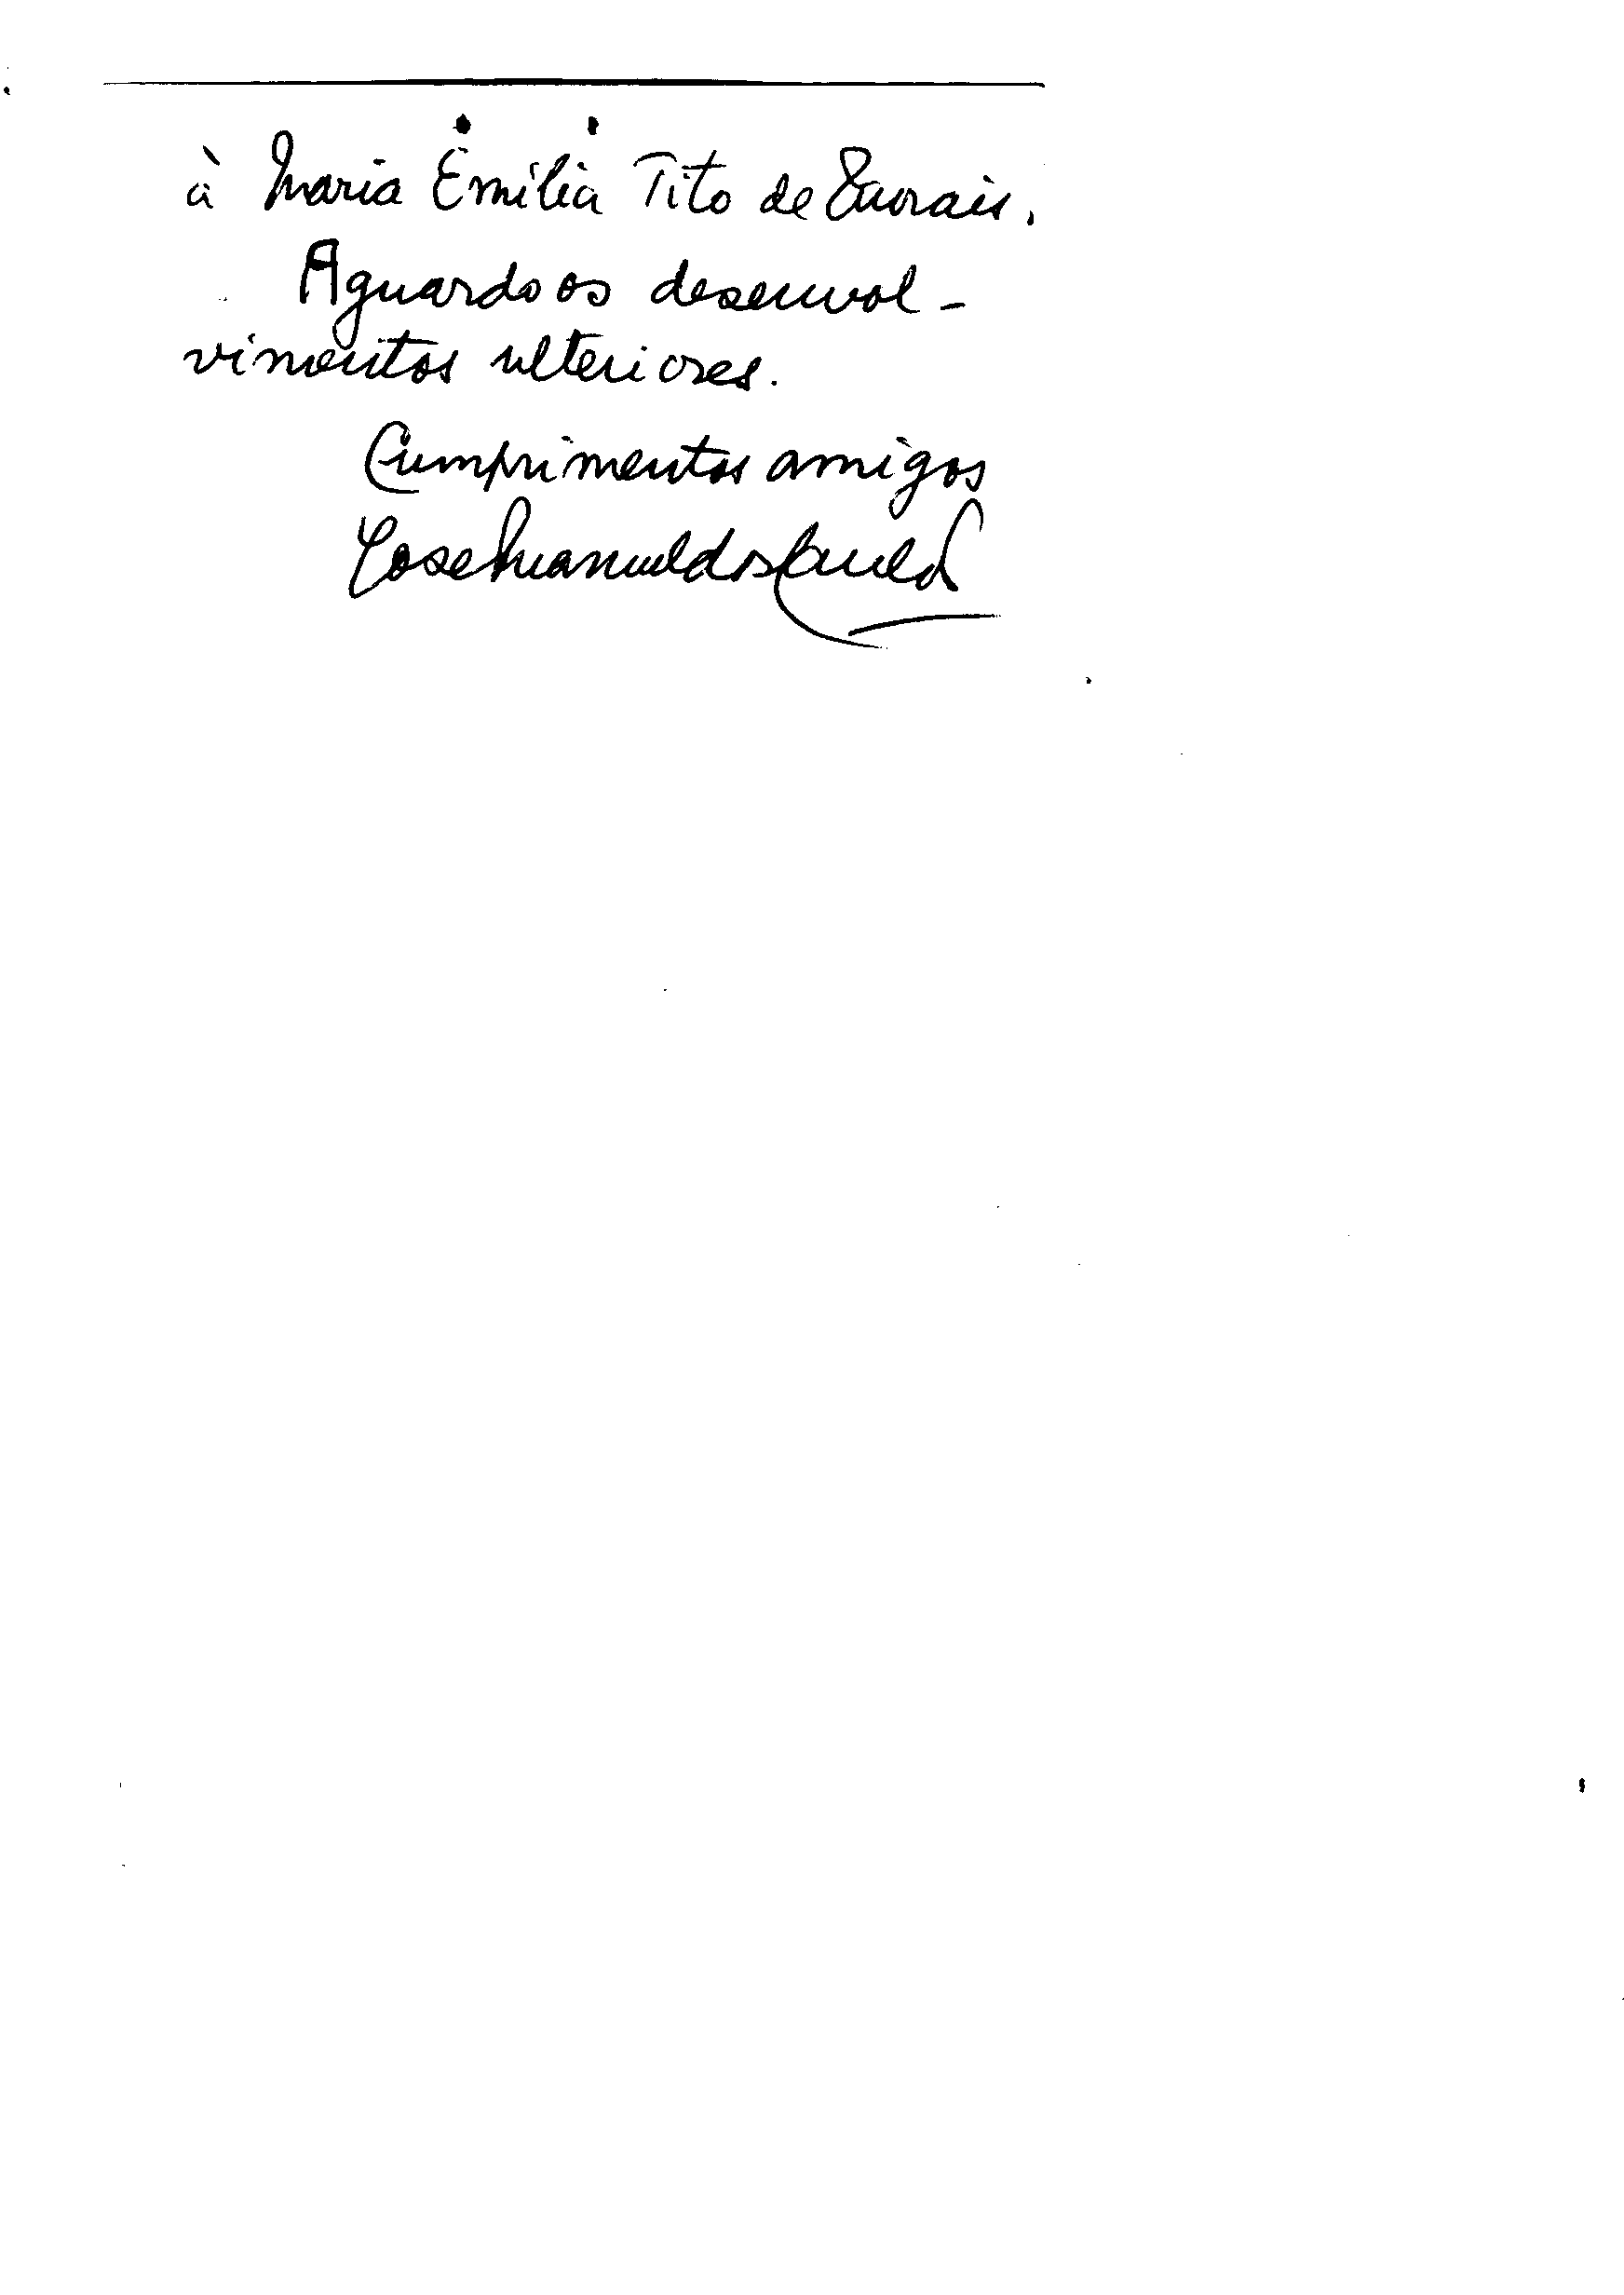 à Maria Emília Tito de Morais.
Aguardo os desenvol-
vimentos ulteriores.
Cumprimentos amigos
José Manuel dos